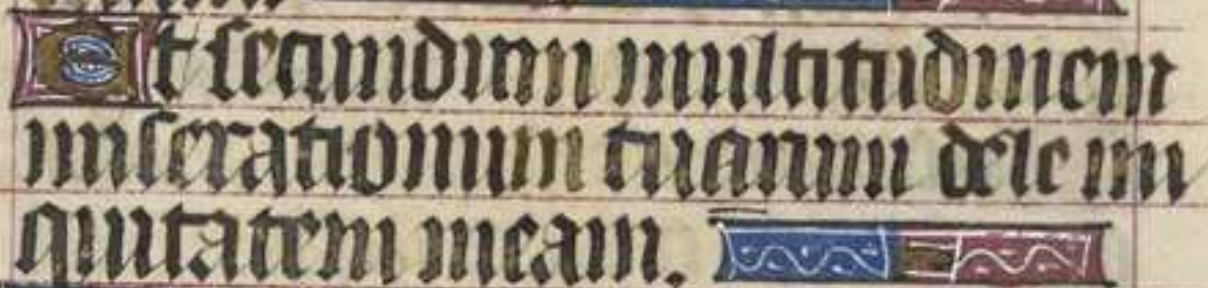 Et secundum multitudinem
miserationum tuarum dele ini
quitatem meam.